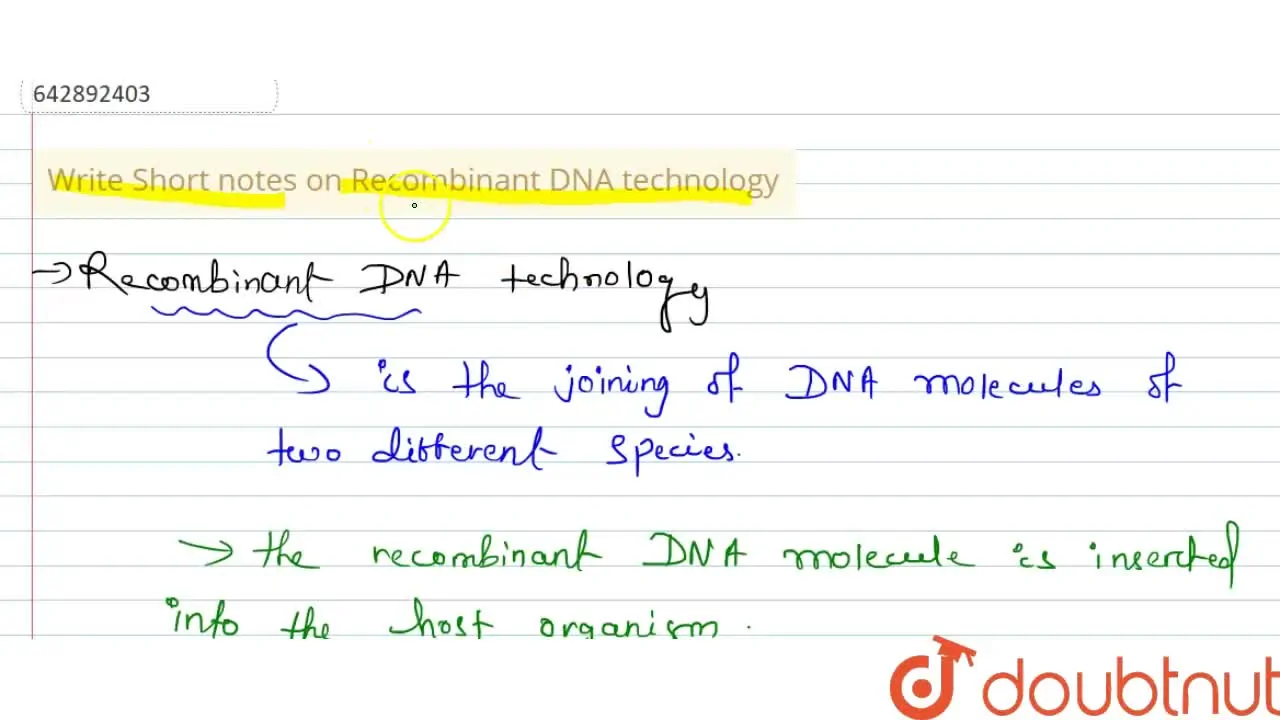 642892403
Write Short notes on Recombinant DNA technology
→ Recombinant DNA technology
is the joining of DNA molecules of
two different species.
→ the recombinant DNA molecule is inserted
into the host organism.
doubtnut